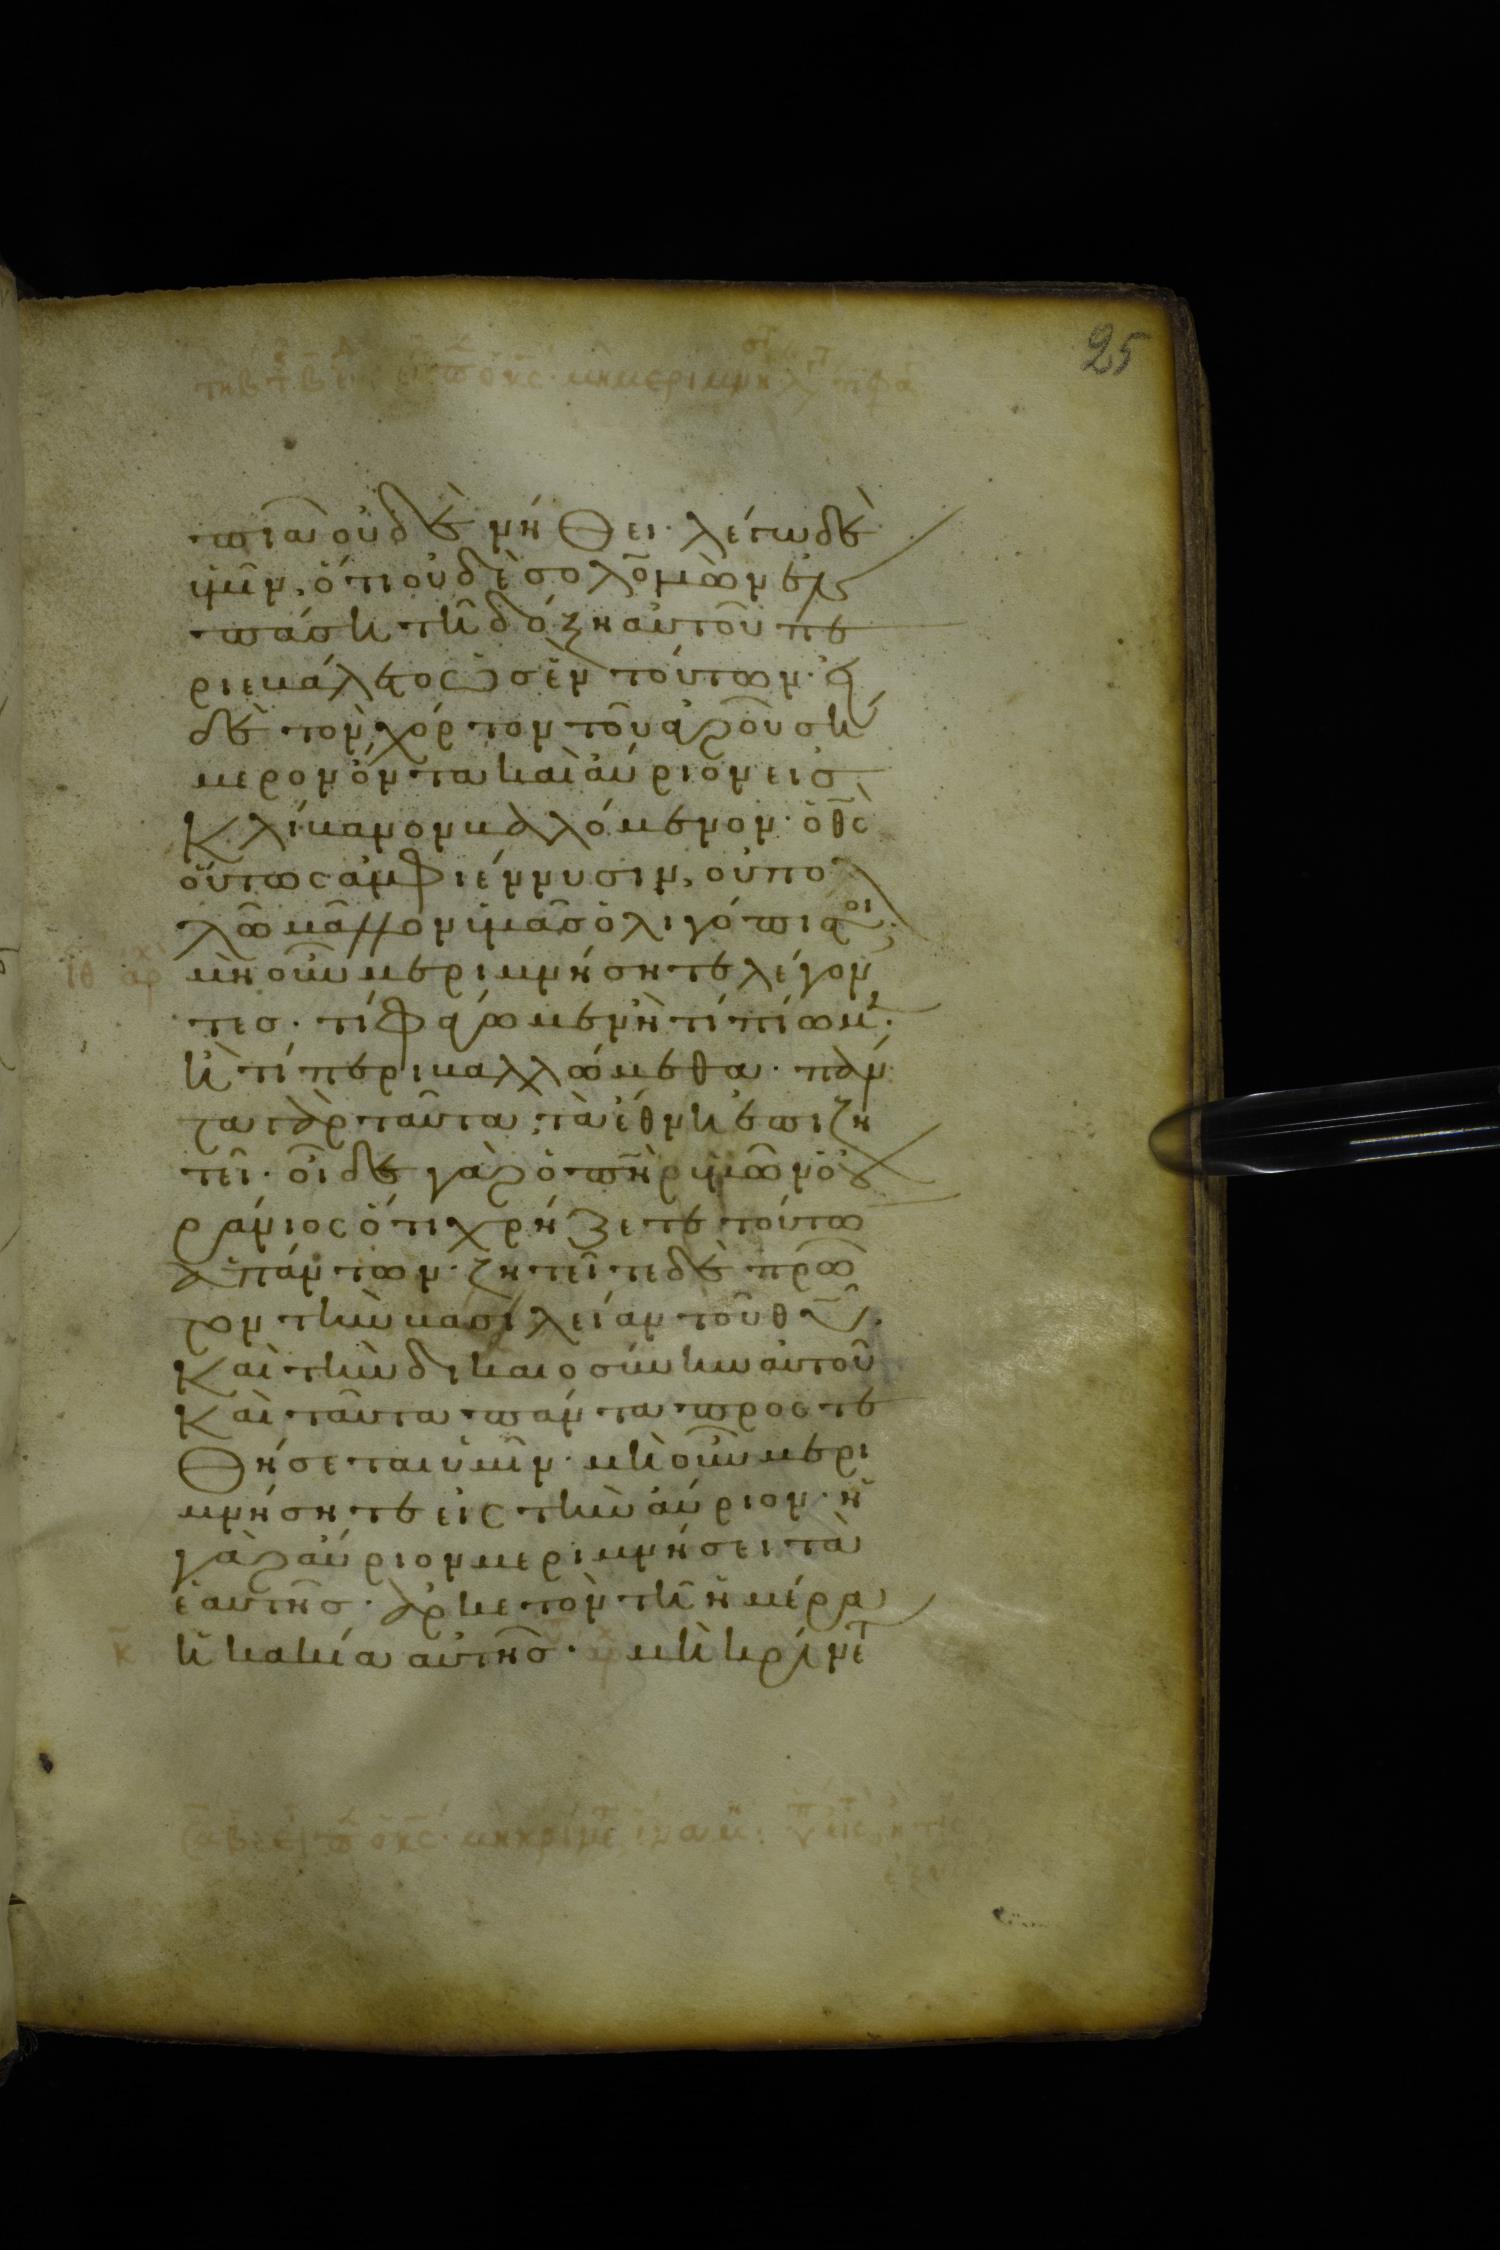 25
πιᾶ οὐδὲ νήθει· λέγω δὲ
ὑμῖν, ὅτι οὐδὲ σολομὼν ἐν
πάση τῆ δόξη αὐτοῦ πε
ριεβάλετο ὡς ἓν τούτων· εἰ
δὲ τὸν χόρτον τοῦ ἀγροῦ σή
μερον ὄντα καὶ αὔριον εἰς
κλίβανον βαλλόμενον· ὁ θ̅ς̅
οὕτως ἀμφιέννυσιν, οὐ πο
λῶ μᾶλλον ὑμᾶς ὀλιγόπιστοι·
μὴ οὖν μεριμνήσητε λέγον
τες· τί φάγωμεν ἢ τί πίωμεν·
ἢ τί περιβαλλώμεθα· πάν
τα γὰρ ταῦτα τὰ ἔθνη ἐπιζη
τεῖ· οἶδε γὰρ ὁ π̅η̅ρ̅ ὑμῶν ὁ οὐ
ράνιος ὅτι χρήζετε τούτω
ἁπάντων· ζητεῖτε δὲ πρῶ
τον τὴν βασιλείαν τοῦ θ̅υ̅·
καὶ τὴν δικαιοσύνην αὐτοῦ
καὶ ταῦτα πάντα προστε
θήσεται ὑμῖν· μὴ οὖν μερι
μνήσητε εἰς τὴν αὔριον· ἡ
γὰρ αὔριον μεριμνήσει τὰ
ἑαυτῆς· ἀρκετὸν τῆ ἡμέρα
ἡ κακία αὐτῆς· μὴ κρίνετ